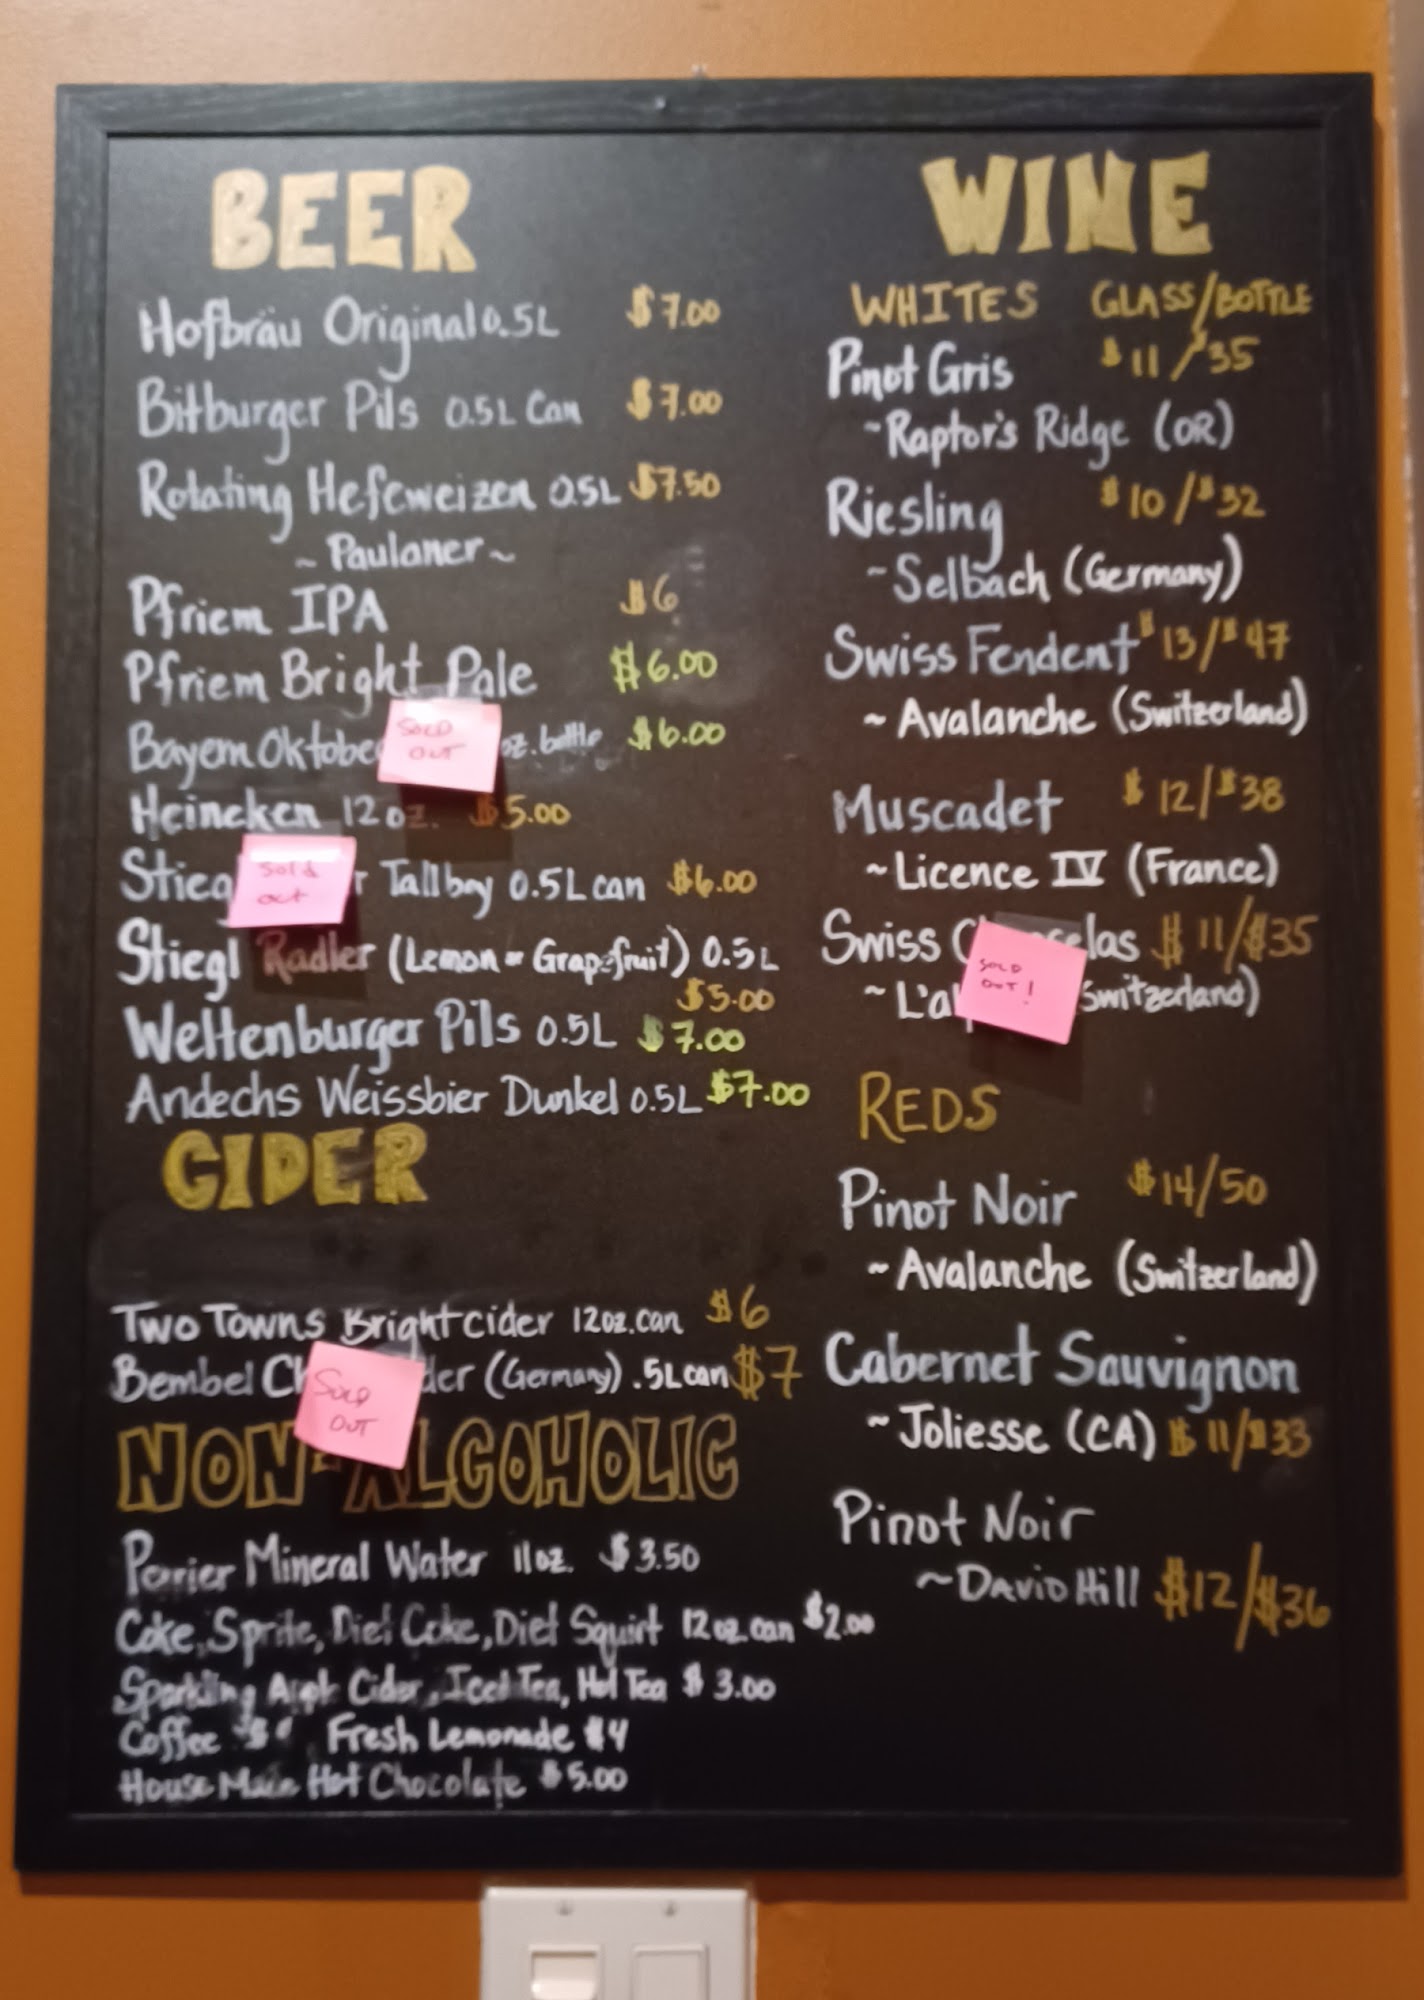 BEER
Hofbräu Original 0.5L $7.00
Bitburger Pils 0.5L Can $7.00
Rotating Hefeweizen 0.5L $7.50
~Paulaner~
Pfriem IPA $6
Pfriem Bright Pale $6.00
Bayern Oktobe oz. bottle $6.00
SOLD
OUT
Heineken 12oz. $5.00
Stieg r Tallboy 0.5L can $6.00
Sold
out
Stiegl Radler (Lemon - Grapefruit) 0.5L
$5.00
Weltenburger Pils 0.5L $7.00
Andechs Weissbier Dunkel 0.5L $7.00
CIDER
Two Towns Bright cider 12oz. can $6
Bembel Ch der (Germany) .5L can $7
SOLD
OUT
NON-ALCOHOLIC
Perrier Mineral Water 11oz. $3.50
Coke, Sprite, Diet Coke, Diet Squirt 12oz. can $2.00
Sparkling Apple Cider, Iced Tea, Hot Tea $3.00
Coffee Fresh Lemonade $4
House Made Hot Chocolate $5.00
WINE
WHITES GLASS/BOTTLE
Pinot Gris $11/$35
~Raptor's Ridge (OR)
Riesling $10/$32
~Selbach (Germany)
Swiss Fendent $13/$47
~Avalanche (Switzerland)
Muscadet $12/$38
~Licence IV (France)
Swiss C selas $11/$35
~L'a Switzerland)
SOLD
OUT!
REDS
Pinot Noir $14/50
~Avalanche (Switzerland)
Cabernet Sauvignon
~Joliesse (CA) $11/$33
Pinot Noir
~David Hill $12/$36